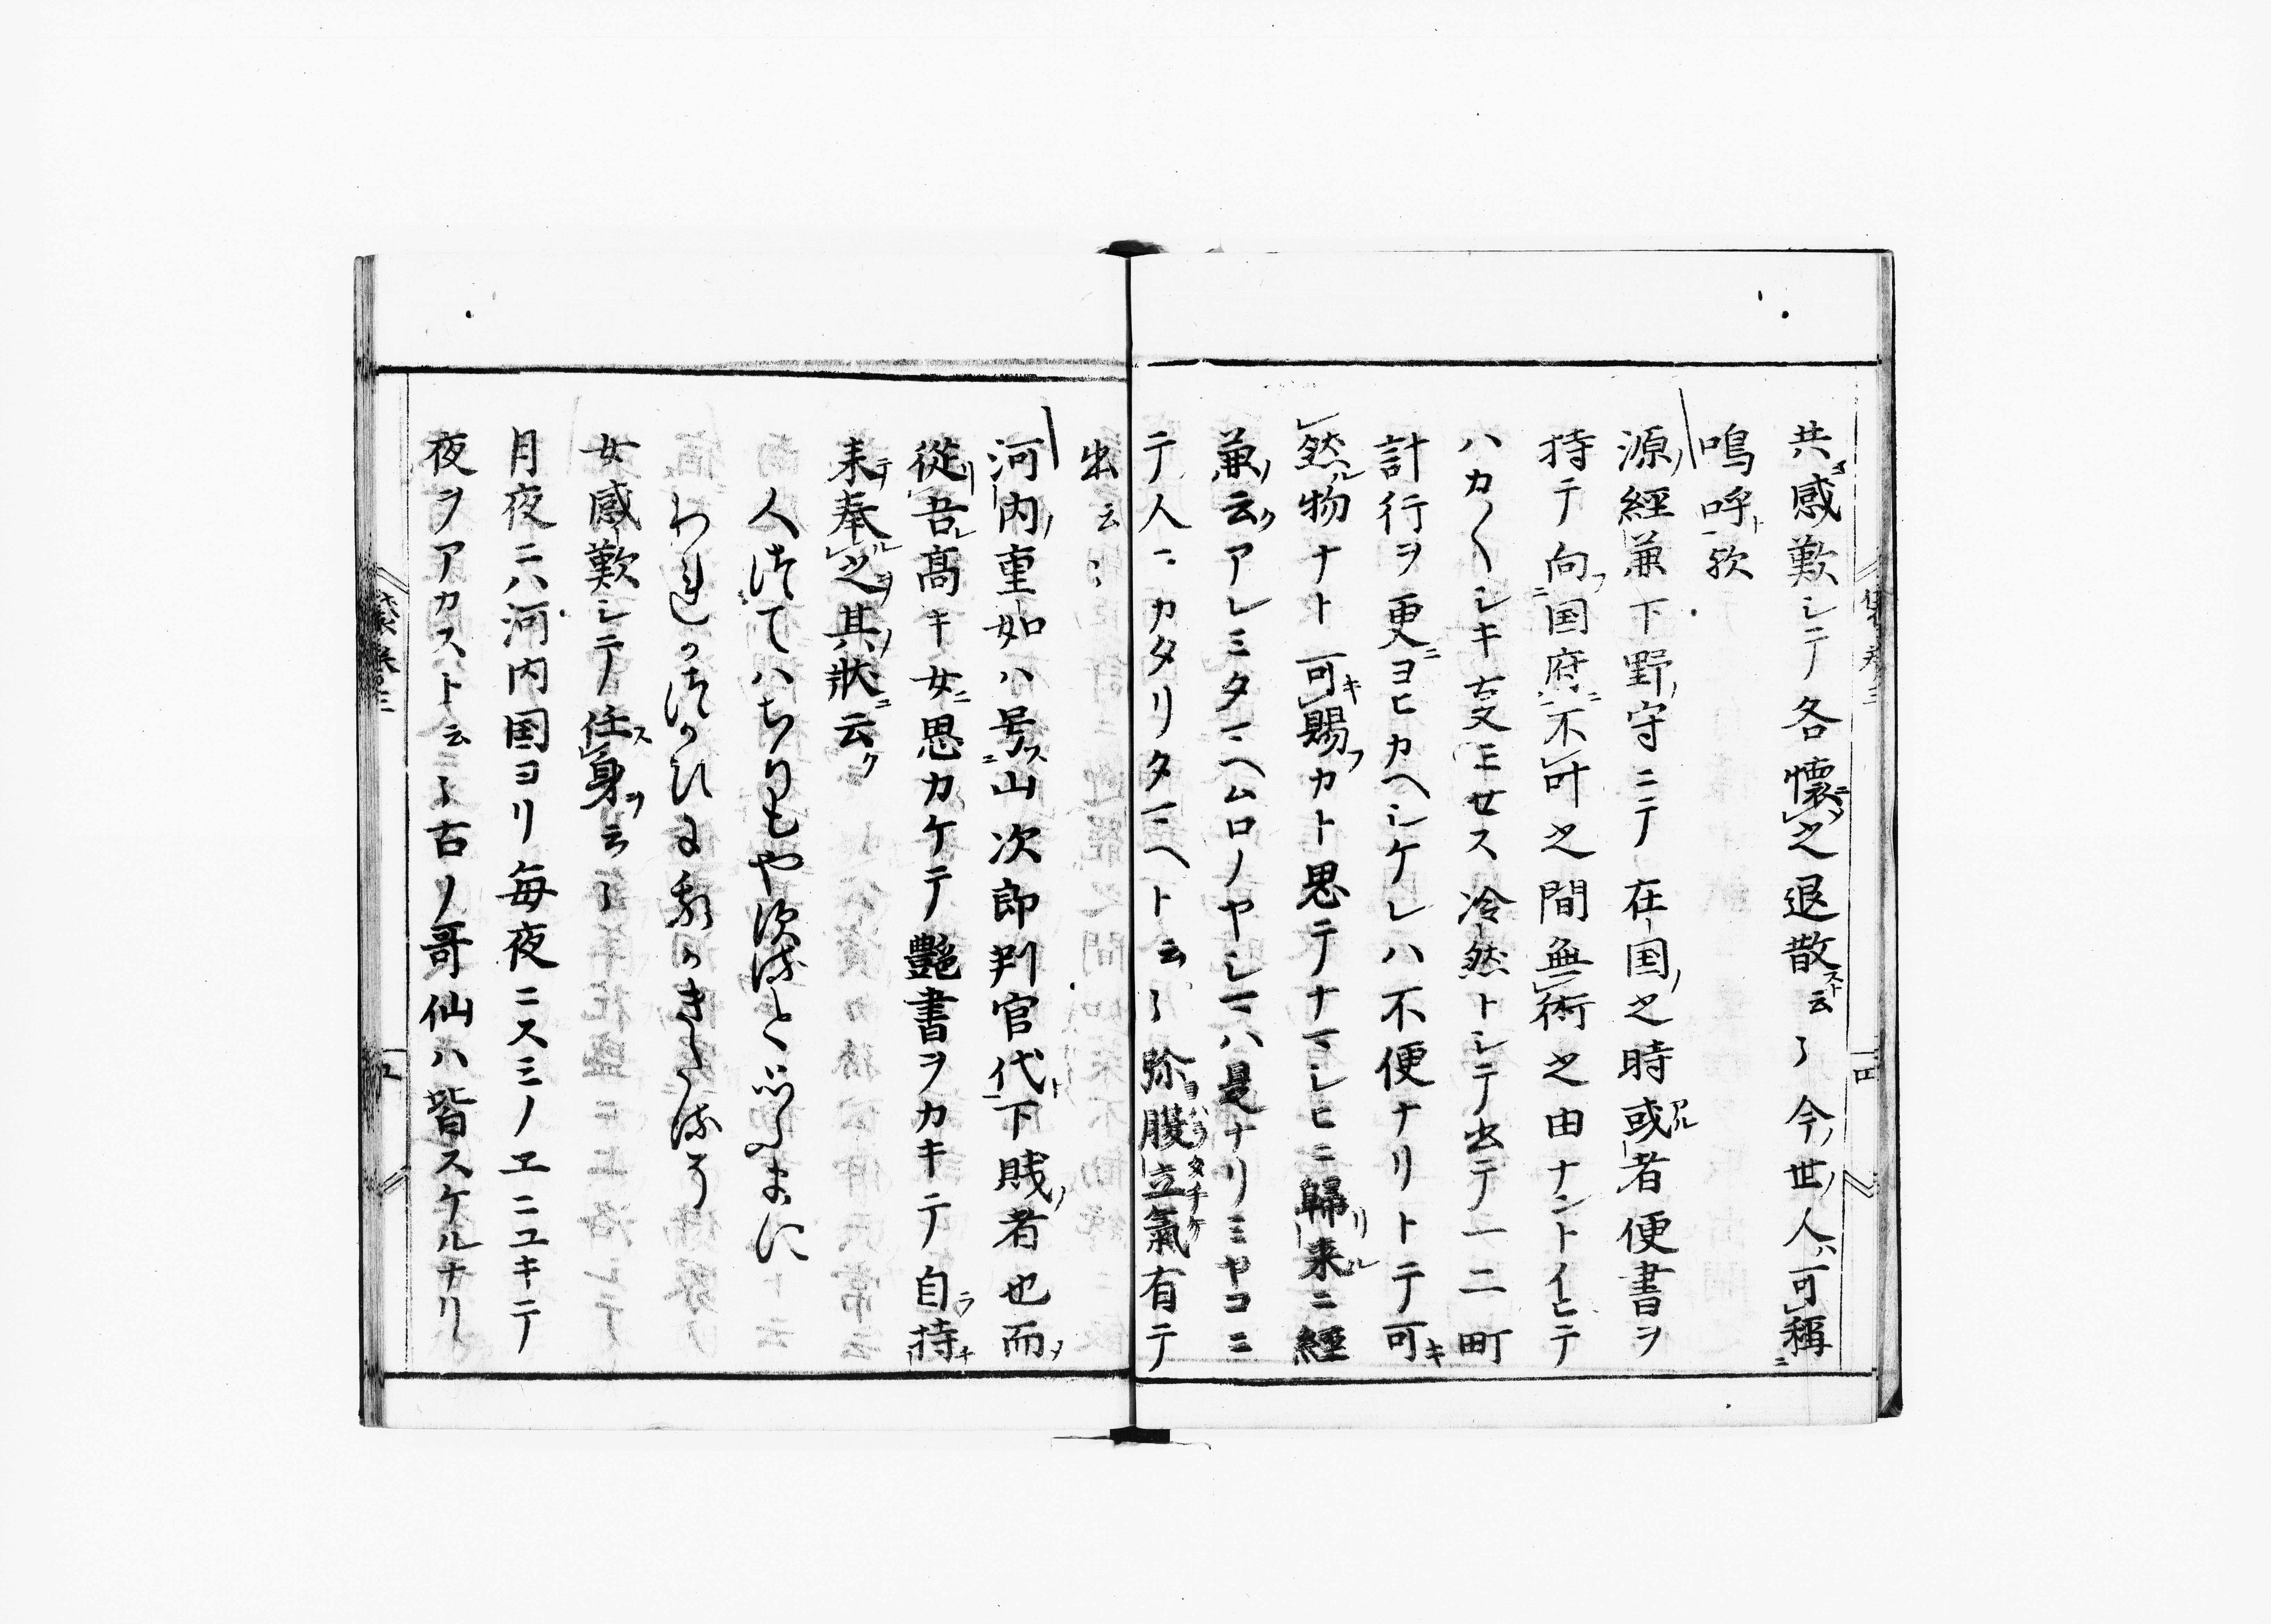 共感歎シテ各懐之退散スト云々今ノ世ノ人ハ可稱
嗚呼歟
源経兼下野守ニテ在国之時或者便書ヲ
持テ向国府不叶之間無術之由ナントイヒテ
ハカ〱シキ叓ミセス冷然トシテ出テ一二町
計行ヲ更ニヨヒカヘシケレハ不便ナリトテ可キ
然ル物ナト可キ賜フカト思テナマシヒニ歸リ来ルニ経
兼云クアレミタマヘムロノヤシマハ是ナリミヤコニ
テ人ニカタリタマヘト云々弥腹立氣有テ
出云々
河内重如ハ号ス山次郎判官代下賎ノ者也而
従吾レ髙キ女ニ思カケテ艶書ヲカキテ自ラ持チ
来テ奉ル之ヲ其ノ状ニ云ク
人つてハちりもや須流と思ふまに
われかつかひに我かきつるそ
女感歎シテ任ス身ヲ云々
月夜ニハ河内国ヨリ毎夜ニスミノヱニユキテ
夜ヲアカスト云々古ノ哥仙ハ皆スケルナリ